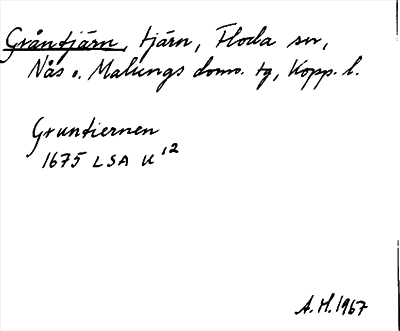 Gråntjärn, tjärn, Floda sn,
Nås o. Malungs doms. tg, Kopp. l.
Gruntiernen
1675 LSA U 12
A.H. 1967